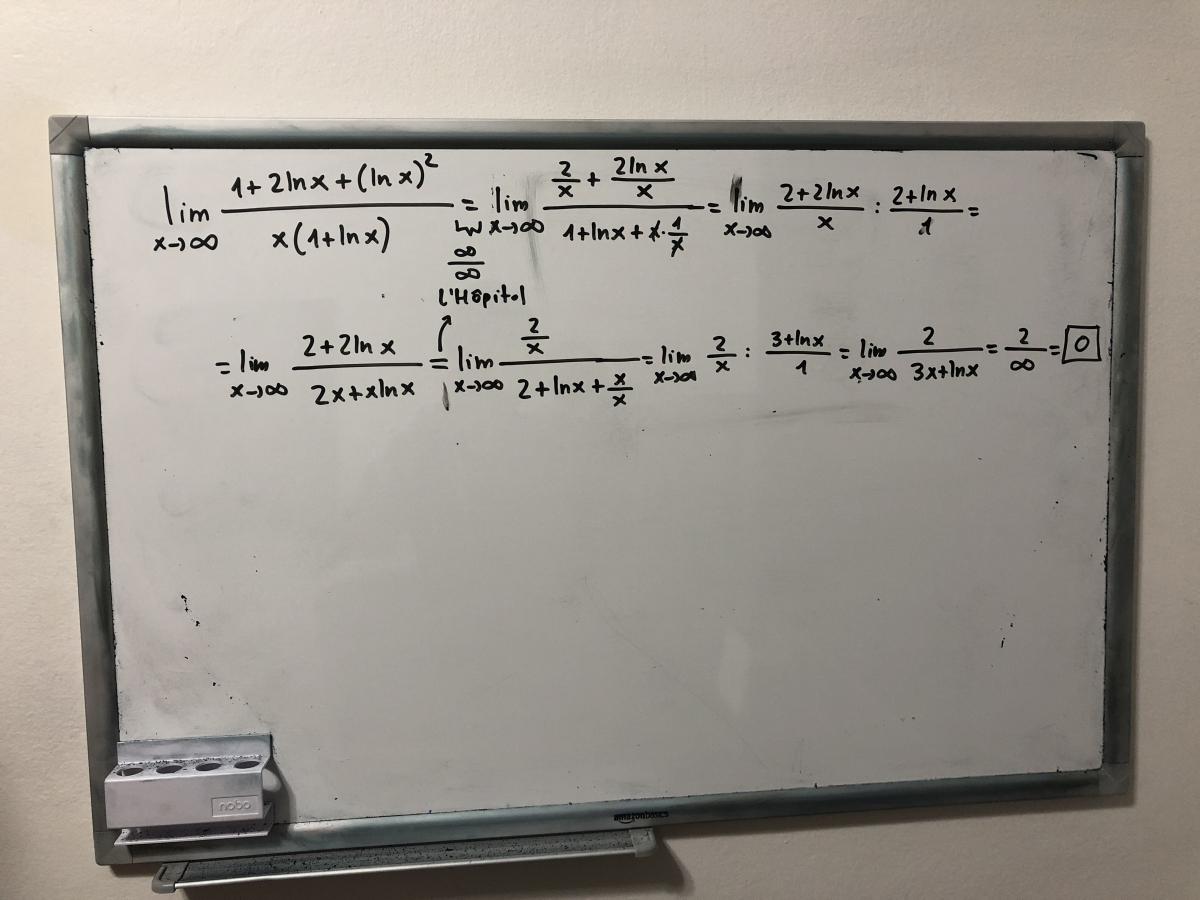 lim x→∞ (1+2lnx+(lnx)²)/(x(1+lnx)) = lim x→∞ (2/x + 2lnx/x)/(1+lnx+x·1/x) = lim x→∞ (2+2lnx)/x : (2+lnx)/1 =
∞/∞
L'Hôpitol
= lim x→∞ (2+2lnx)/(2x+xlnx) = lim x→∞ (2/x)/(2+lnx+x/x) = lim x→∞ 2/x : (3+lnx)/1 = lim x→∞ 2/(3x+lnx) = 2/∞ = 0
nobo
amazonbasics